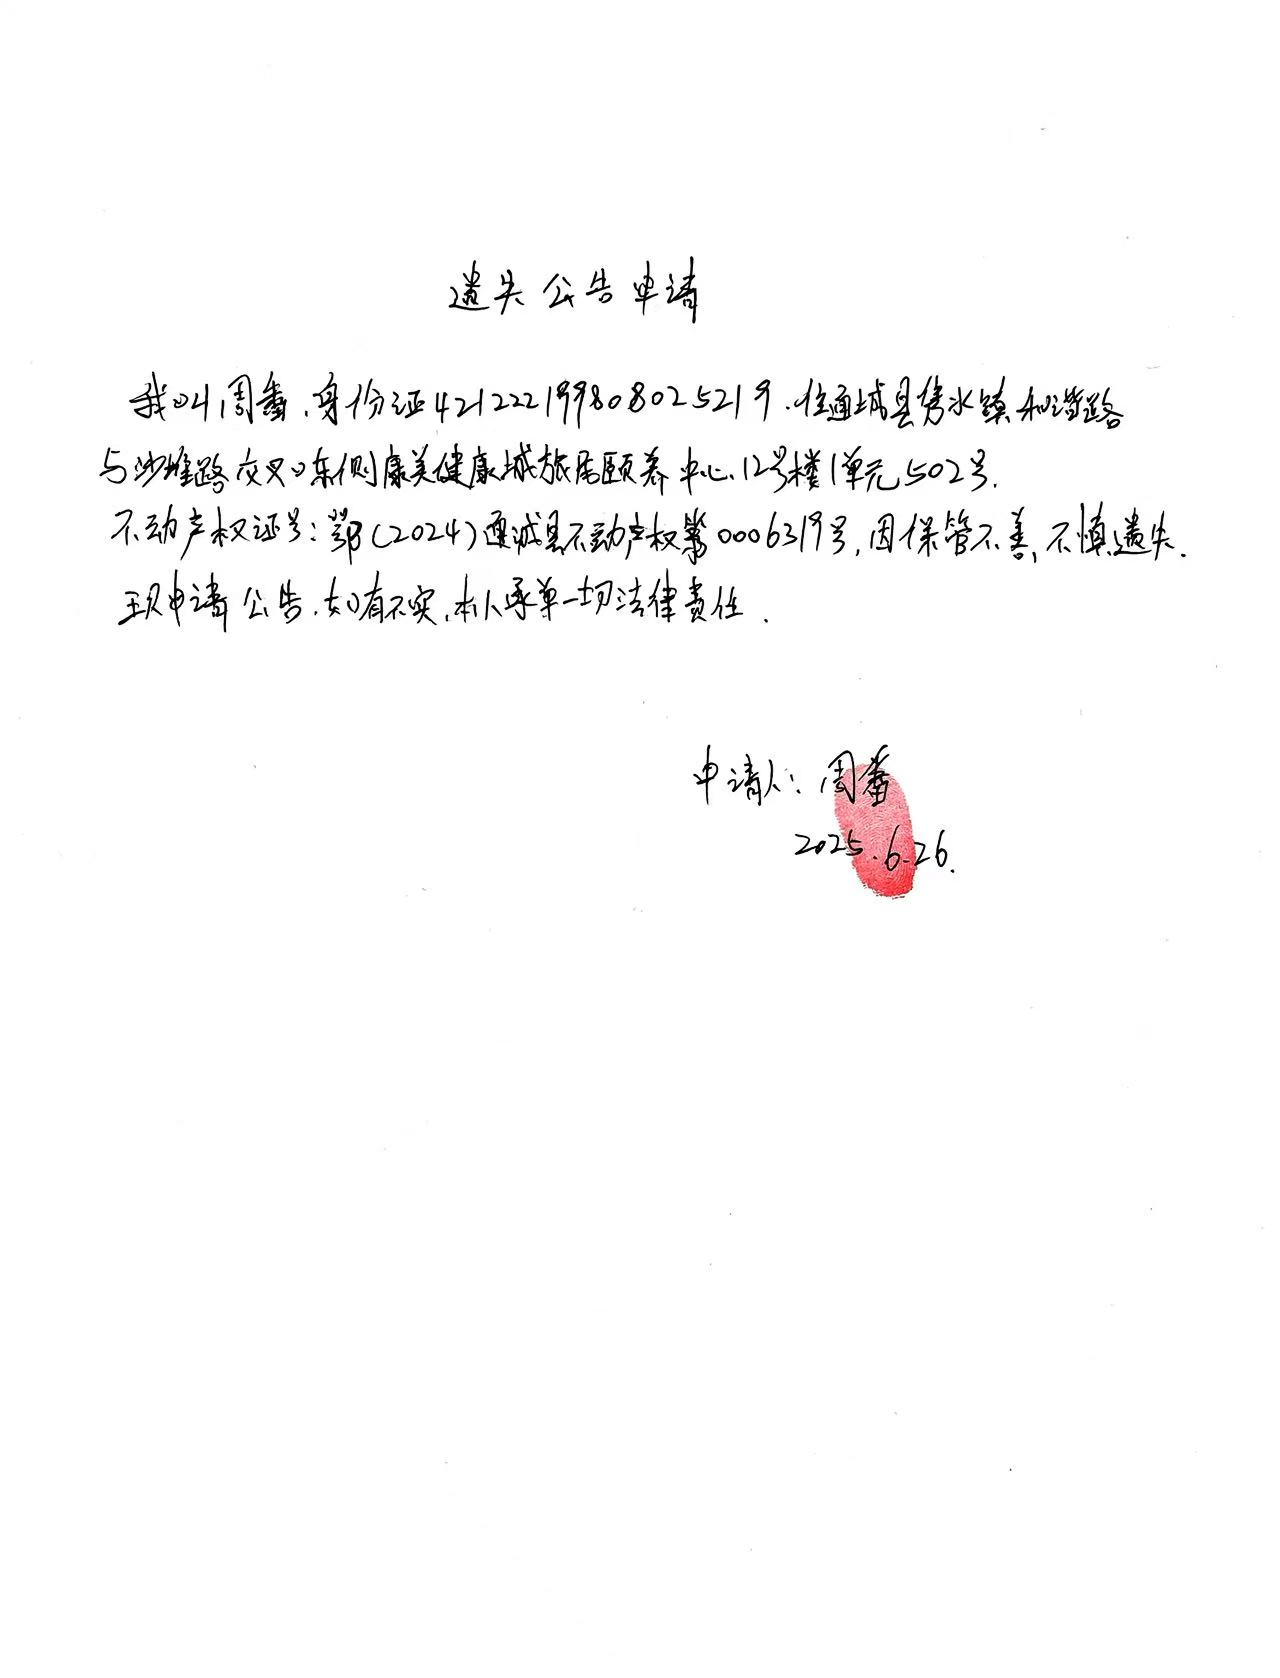 遗失公告申请
我叫周番,身份证421222199808025219.住通城县隽水镇和谐路
与沙堆路交叉口东侧康美健康城旅居颐养中心.12号楼1单元502号.
不动产权证号:鄂(2024)通城县不动产权第0006319号,因保管不善,不慎遗失.
现申请公告.如有不实,本人承单一切法律责任.
申请人:周番
2025.6.26.